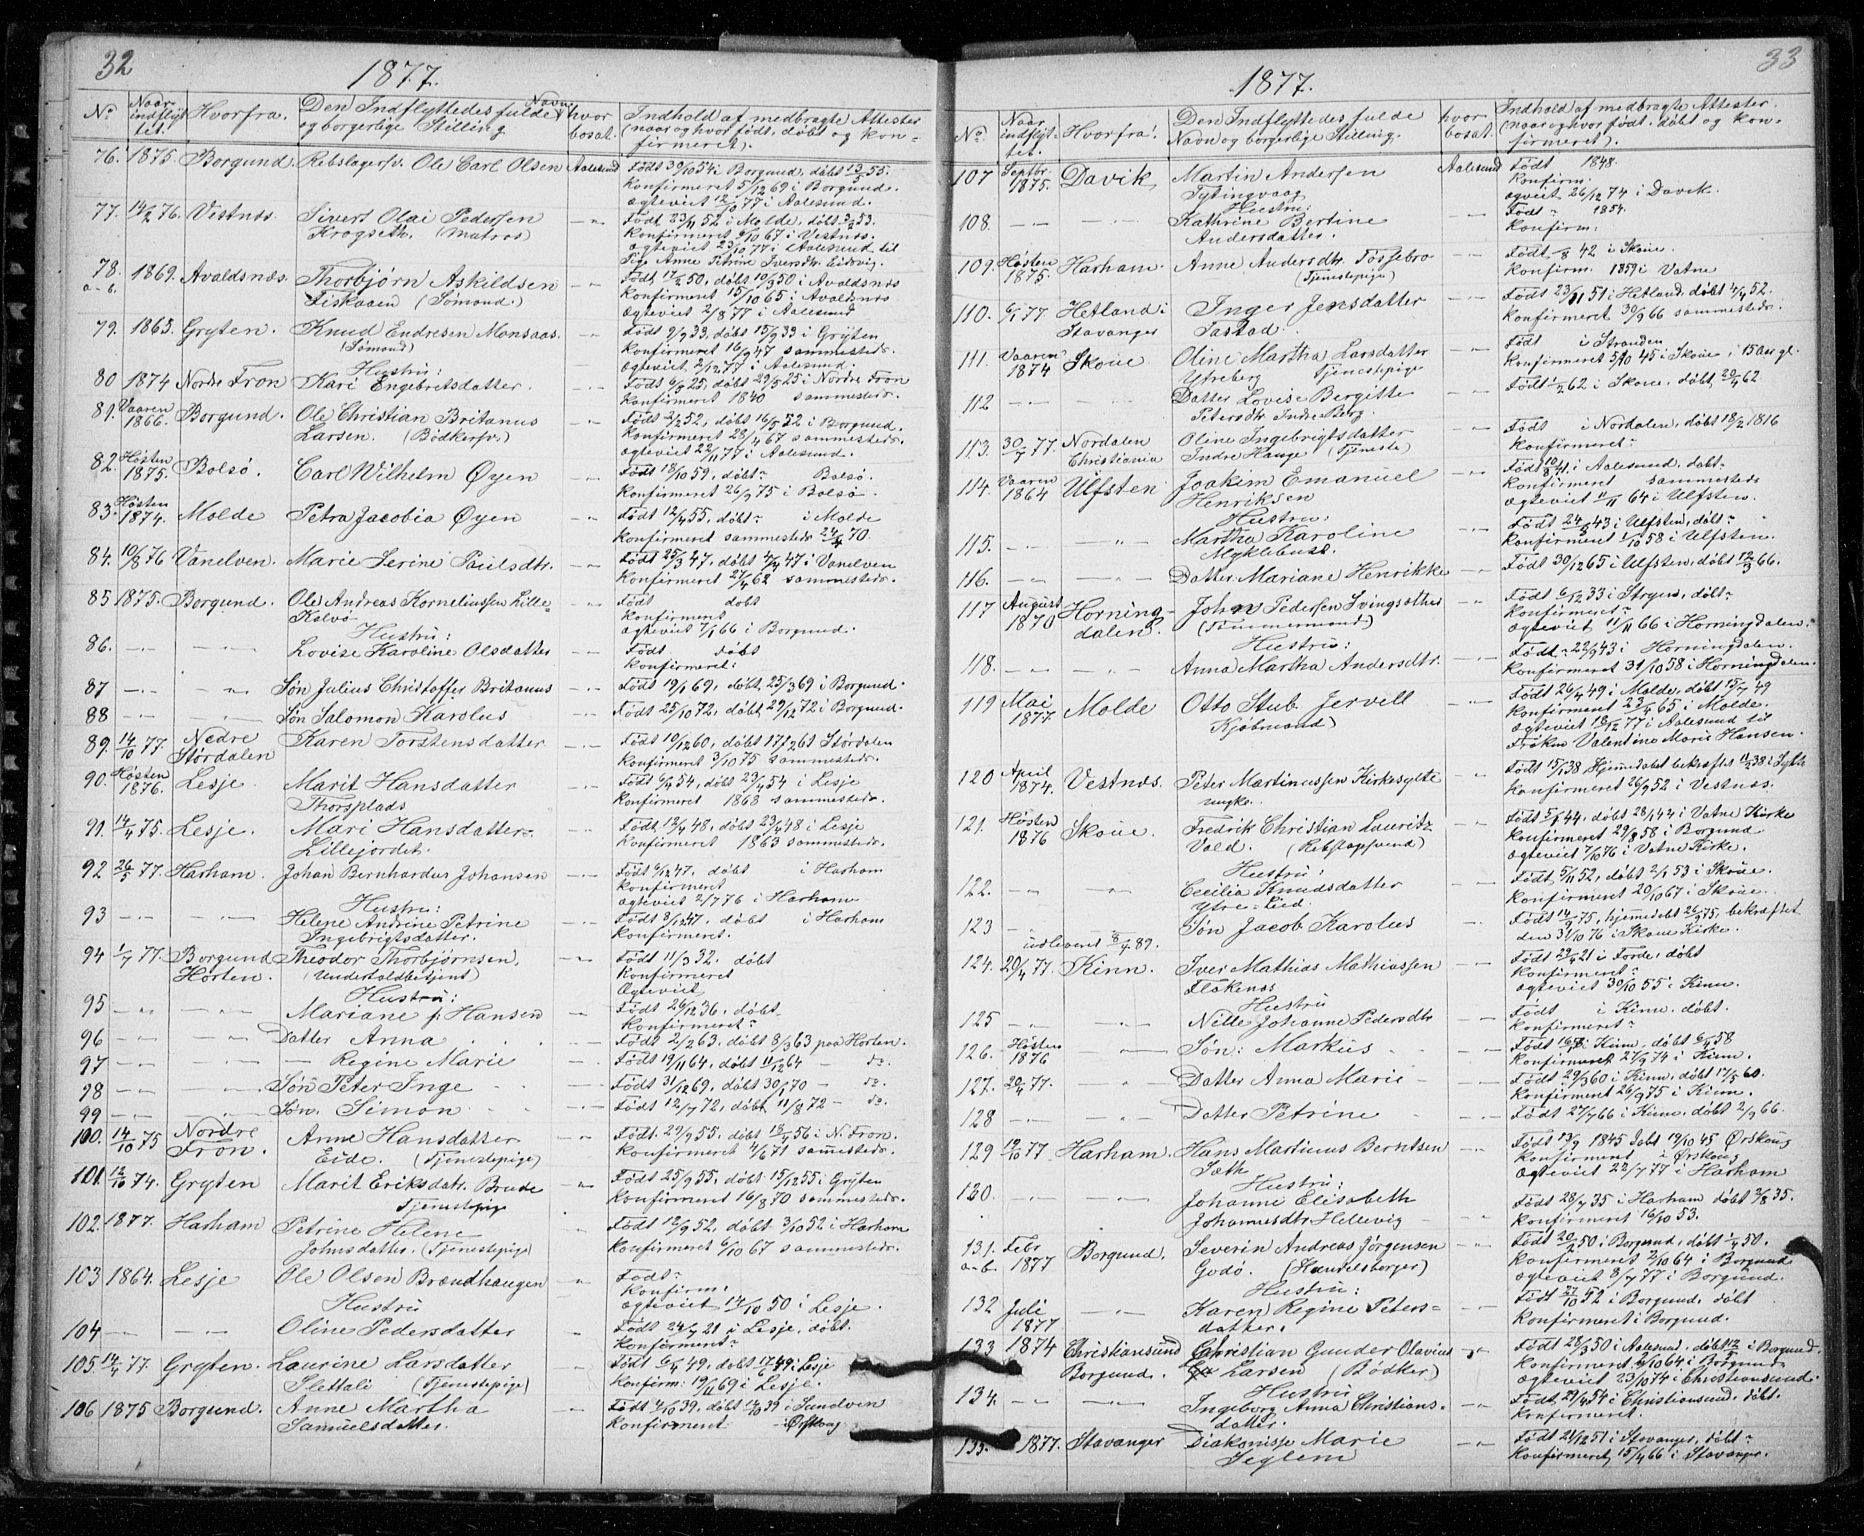 32
1877.
No
Naar indflyttet.
Hvorfra.
Den Indflyttedes fulde Navn og borgerlige Stilling
hvor bosat.
Indhold af medbragte Attester (naar og hvor født, døbt og konfirmeret).
76. 1875. Borgund. Rebslagersv. Ole Carl Olsen Aalesund Født 30/10 54 i Borgund, døbt 13/5 55.
Konfirmeret 5/12 69 i Borgund.
Ægteviet 12/10 77 i Aalesund.
77. 14/2 76. Vestnæs. Sivert Olai Pedersen Født 23/11 52 i Molde, døbt 2/2 53.
Krogseth. (Matros) Konfirmeret 6/10 67 i Vestnæs.
Ægteviet 23/10 77 i Aalesund til
Pige Anne Petrine Iversdtr. Eidsvig.
78. a-b. 1869. Avaldsnæs. Thorbjørn Askildsen Født 17/2 50, døbt 10/3 50 i Avaldsnæs
Fiskaaen (Sømand.) Konfirmeret 15/10 65 i Avaldsnæs
Ægteviet 2/8 77 i Aalesund
79. 1863. Gryten. Knud Endresen Monsaas. Født 9/9 33, døbt 15/9 33 i Gryten
(Sømand) Konfirmeret 16/9 47 sammesteds.
Ægteviet 2/12 77 i Aalesund.
Hustru:
80 1874 Nordre Fron Kari Engebretsdatter. Født 6/5 25, døbt 29/5 25 i Nordre Fron
Konfirmeret 1840 sammesteds.
81. Vaaren 1866. Borgund. Ole Christian Britanus Født 2/2 52, døbt 16/5 52 i Borgund.
Larsen. (Bødkersv.) Konfirmeret 28/4 67 sammesteds.
Ægteviet 22/11 77 i Aalesund.
82. Høsten 1875. Bolsø. Carl Wilhelm Øyen Født 18/10 59, døbt Bolsø.
Konfirmeret 26/9 75 i Bolsø.
83. Høsten 1874. Molde Petra Jacobia Øyen Født 12/4 55, døbt i Molde
Konfirmeret sammesteds 24/4 70.
84. 10/8 76 Vanelven. Marie Serine Paulsdtr. Født 25/3 47, døbt 4/4 47 i Vanelven
Konfirmeret 27/4 62 sammesteds.
85 1875. Borgund. Ole Andreas Korneliussen Lille- Født døbt
Kalvø. Konfirmeret
Ægteviet 7/1 66 i Borgund.
Hustru:
86. Lovise Karoline Olsdatter Født døbt
Konfirmeret:
87 Søn Julius Christoffer Britanus Født 19/1 69, døbt 25/3 69 i Borgund.
88 Søn Salomon Karolus Født 25/10 72, døbt 29/12 72 i Borgund.
89. 14/10 77. Nedre Størdalen Karen Torstensdatter Født 10/12 60, døbt 17/2 61 Størdalen
Konfirmeret 3/10 75 sammesteds.
90. Høsten 1876. Lesje. Marit Hansdatter Født 6/4 54, døbt 23/4 54 i Lesje
Thorsplads Konfirmeret 1868 sammesteds.
91. 14/4 75. Lesje. Mari Hansdatter Født 12/4 48, døbt 23/4 48 i Lesje
Lillejordet. Konfirmeret 1863 sammesteds.
92 26/5 77. Harham. Johan Bernhardus Johansen Født 6/12 47, døbt i Harham
Konfirmeret
Ægteviet 2/7 76 i Harham
Hustru:
93 Helene Andrine Petrine Født 8/1 47, døbt i Harham
Ingebrigtsdatter. Konfirmeret.
94 1/7 77. Borgund Horten. Theodor Thorbjørnsen, Født 11/3 32. døbt
(Underholdbetjent) Konfirmeret
Ægteviet
Hustru:
95 Mariane f. Hansen Født 26/12 36. døbt
Konfirmeret?
96 Datter Anna Født 2/2 63, døbt 8/3 63 paa Horten.
97 Regine Marie Født 19/11 64, døbt 11/12 64 do.
98 Søn Peter Inge Født 31/12 69, døbt 30/1 70 do.
99 Søn. Simon Født 12/7 72, døbt 11/8 72 do.
100. 14/10 75 Nordre Fron. Anne Hansdatter Født. 29/9 55, døbt 13/4 56 i N. Fron.
Eide. (Tjenestepige) Konfirmeret 4/6 71 sammesteds.
101. 12/10 74. Gryten Marit Eriksdatr. Brude Født 25/9 55, døbt 15/12 55 i Gryten
Tjenestepige Konfirmeret 16/8 70 sammesteds.
102. 1877. Harham Petrine Helene Født 12/9 52, døbt 3/10 52 i Harham
Johnsdatter. (Tjenestepige) Konfirmeret 6/10 67 sammesteds.
103 1864. Lesje Ole Olsen Brændhaugen Født
Konfirm:
Ægteviet 14/10 50 i Lesje.
Hustru
104 Oline Pedersdatter Født 24/7 21 i Lesje, døbt.
Konfirmeret
105 14/4 77. Gryten. Laurine Larsdatter Født 6/5 49, døbt 17/6 49 i Lesje
Slettali (Tjenestepige) Konfirm: 19/11 69 i Lesje.
106 1875 Borgund. Anne Martha Født 4/6 39, døbt 14/10 39 i Sundven
Samuelsdatter. Konfirmeret Ørskoug
33
1877.
No
Naar indflyttet.
Hvorfra.
Den Indflyttedes fulde Navn og borgerlige Stilling.
hvor bosat.
Indhold af medbragte Attester. (naar og hvor født, døbt og konfirmeret).
107 Septbr. 1875. Davik Martin Andersen Aalesund Født 1848.
Tytingvaag Konfirm.
Ægviet 26/12 74 i Davik.
Hustru:
108. Kathrine Bertine Født 1854.
Andersdatter. Konfirm:
109. Høsten 1875. Harham. Anne Andersdtr. Fossebro Født /8 42 i Skoue.
(Tjenestepige) Konfirm. 1859 i Vatne
110. 6/1 77 Hetland i Stavanger Inger Jonsdatter Født 23/11 51 i Hetland, døbt 4/4 52.
Jastad. Konfirmeret 30/9 66 sammesteds.
111. Vaaren 1874 Skoue Oline Martha Larsdatter Født i Stranden
Ytreberg Tjenestepige Konfirmeret 5/10 45 i Skoue, 15 Aar gl.
112 Datter Lovise Bergitte Født 1/2 62 i Skoue, døbt 20/4 62
Petersdtr Indreberg.
113. 30/7 77. Nordalen Christiania Oline Ingebrigtsdatter Født i Nordalen, døbt 18/2 1816
Indre Hauge (Tjeneste) Konfirmeret?
114. Vaaren 1864 Ulfsten Joakim Emanuel Født 10/8 41. i Aalesund. døbt.
Henriksen Konfirmeret sammesteds
Ægteviet 11/11 64 i Ulfsten.
Hustru:
115. Martha Karoline Født 24/5 43 i Ulfsten, døbt
Myklebust. Konfirmeret 1/10 58 i Ulfsten.
116. Datter Mariane Henrikke Født 30/12 65 i Ulfsten, døbt 12/3 66.
117 August 1870 Horningdalen. John Pedersen Svingsæther Født 6/12 33 i Stryen, døbt
(Tømmermand) Konfirmeret
Ægteviet 11/11 66 i Horningdalen.
Hustru:
118. Anna Martha Andersdtr. Født 22/9 43 i Horningdalen.
Konfirmeret 31/10 58 i Horningdalen.
119 Mai 1877 Molde Otto Stub Jervell Født 26/4 49 i Molde, døbt 15/7 49
Kjøbmand) Konfirmeret 23/4 65 i Molde.
Ægteviet 18/12 77 i Aalesund til
Frøken Valentine Marie Hansen.
120 April 1874. Vestnæs. Peter Martinussen Kirkesylte Født 15/1 38 Hjemmedøbt bekræftet 11/2 38 i Sylte
ungk. Konfirmeret 26/9 52 i Vestnæs.
121. Høsten 1876 Skoue. Fredrik Christian Lauritz Født 5/1 44, døbt 28/1 44 i Vatne Kirke
Vold. (Rebslagersvend) Konfirmeret 29/8 58 i Borgund
Ægteviet 7/10 76 i Vatne Kirke.
Hustru:
122. Cecilia Knudsdatter Født 5/11 52, døbt 2/1 53 i Skoue.
Ytre-Lied. Konfirmeret 20/10 67 i Skoue.
123 Søn Jacob Karolus Født 14/2 75, hjemmedøbt 26/2 75, bekræftet
udleveret 8/7 89. den 31/10 76 i Skoue Kirke.
124. 20/4 77. Kinn. Iver Mathias Mathiassen Født 29/4 21 i Førde, døbt
Flokenæs Konfirmeret
Ægteviet 30/10 55 i Kinn.
Hustru
125 Nille Johanne Pedersdtr Født i Kinn, døbt.
Konfirmeret
126. Høsten 1876 Søn: Markus Født i Kinn, døbt 6/4 58
Konfirmeret 27/9 74 i Kinn.
127. 20/4 77. Datter Anna Marie Født 29/3 60 i Kinn, døbt 17/5 60.
Konfirmeret 26/9 75 i Kinn.
128 Datter Petrine Født 27/7 66 i Kinn, døbt 2/9 66.
129 19/10 77 Harham. Hans Martinus Berntsen Født 13/9 1845 døbt 19/10 45 Ørskoug
Sæth Konfirmeret i Ørskoug
Ægteviet 22/7 77 i Harham
Hustru:
130. Johanne Elisabeth Født 28/7 35 i Harham døbt 2/8 35.
Johannesdtr Hellevig Konfirmeret 16/10 53.
131. a-b. Febr 1877 Borgund. Severin Andreas Jørgensen Født 20/2 50 i Borgund, døbt 1/4 50.
Godø. (Handelsborger) Konfirmeret 2/10 64 i Borgund
Ægteviet 8/7 77 i Borgund.
Hustru:
132 Juli 1877 Karen Regine Peters- Født 27/10 52 i Borgund, døbt
datter. Konfirmeret i Borgund.
133 1874 Christiansund Borgund. Christian Gunder Olavius Født 28/3 50 i Aalesund, døbt 12/5 i Borgund.
Larsen (Bødker) Konfirmeret 2/10 64 i Borgund
Ægteviet 23/10 74 i Christiansund.
Hustru
134. Ingeborg Anna Christians- Født 29/4 54 i Christiansund. døbt.
datter. Konfirmeret.
135. 1877. Stavanger Diakonisse Marie Født 21/12 51 i Stavanger, døbt
Seglem Konfirmeret 15/4 66 i Stavanger.